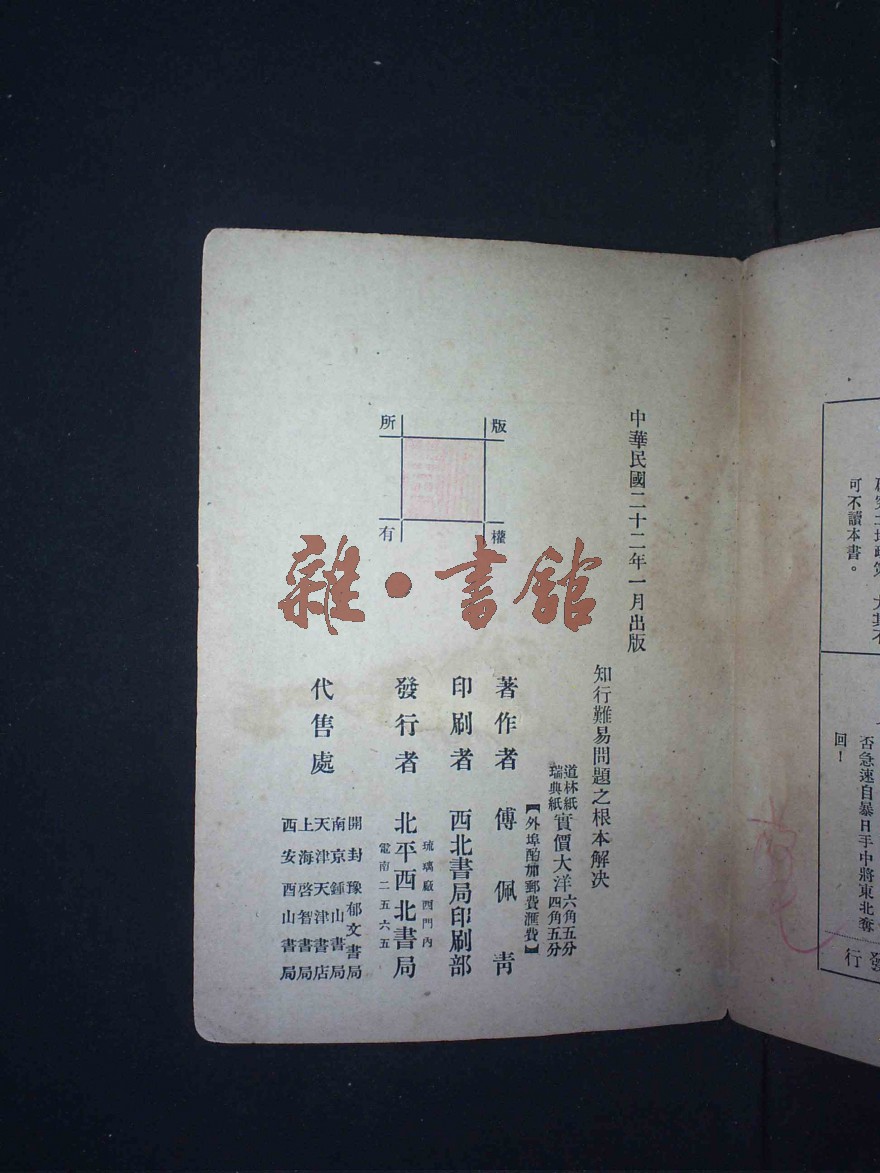 可不讀本書。
否急速自暴日手中將東北奪
回！
發行
中華民國二十二年一月出版
知行難易問題之根本解決
道林紙
瑞典紙
實價大洋
六角五分
四角五分
【外埠酌加郵費滙費】
版權
所有
著作者 傅佩靑
印刷者 西北書局印刷部
發行者 北平西北書局
琉璃廠西門內
電南二五六五
代售處
開封豫郁文書局
南京鍾山書局
天津天津書店
上海啓智書局
西安酉山書局
雜·書館